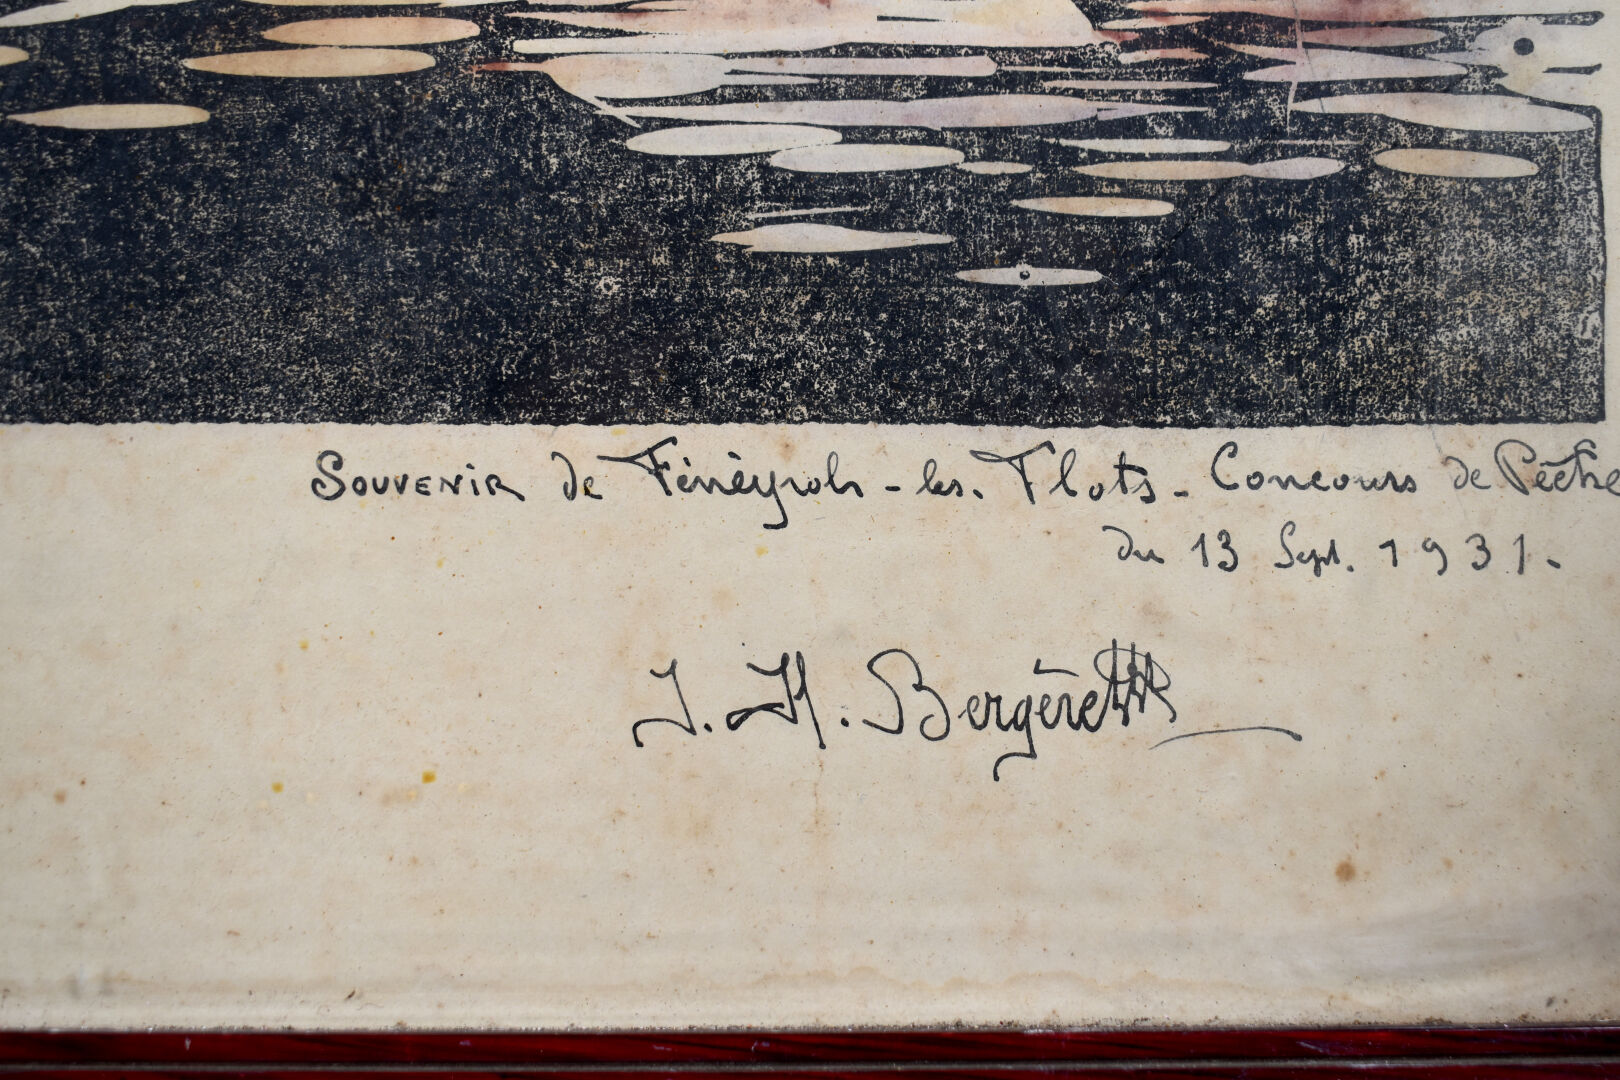 Souvenir de Fénéyrols-les-Flots - Concours de Pêche
du 13 Sept. 1931.
J. H. Bergèret